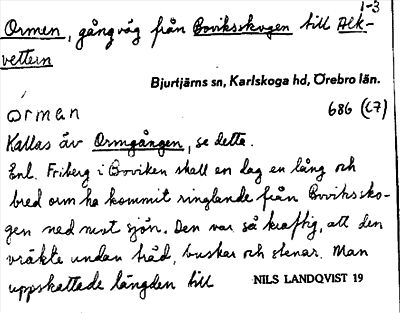 1-3
Ormen, gångväg från Boviksskogen till Alk-
vettern
Bjurtjärns sn, Karlskoga hd, Örebro län.
ormen 686 (67)
Kallas äv Ormgången, se detta.
Enl. Friberg i Boviken skall en dag en lång och
bred orm ha kommit ringlande från Boviksko-
gen ned mot sjön. Den var så kraftig, att den
vräkte undan träd, buskar och stenar. Man
uppskattade längden till
NILS LANDQVIST 19